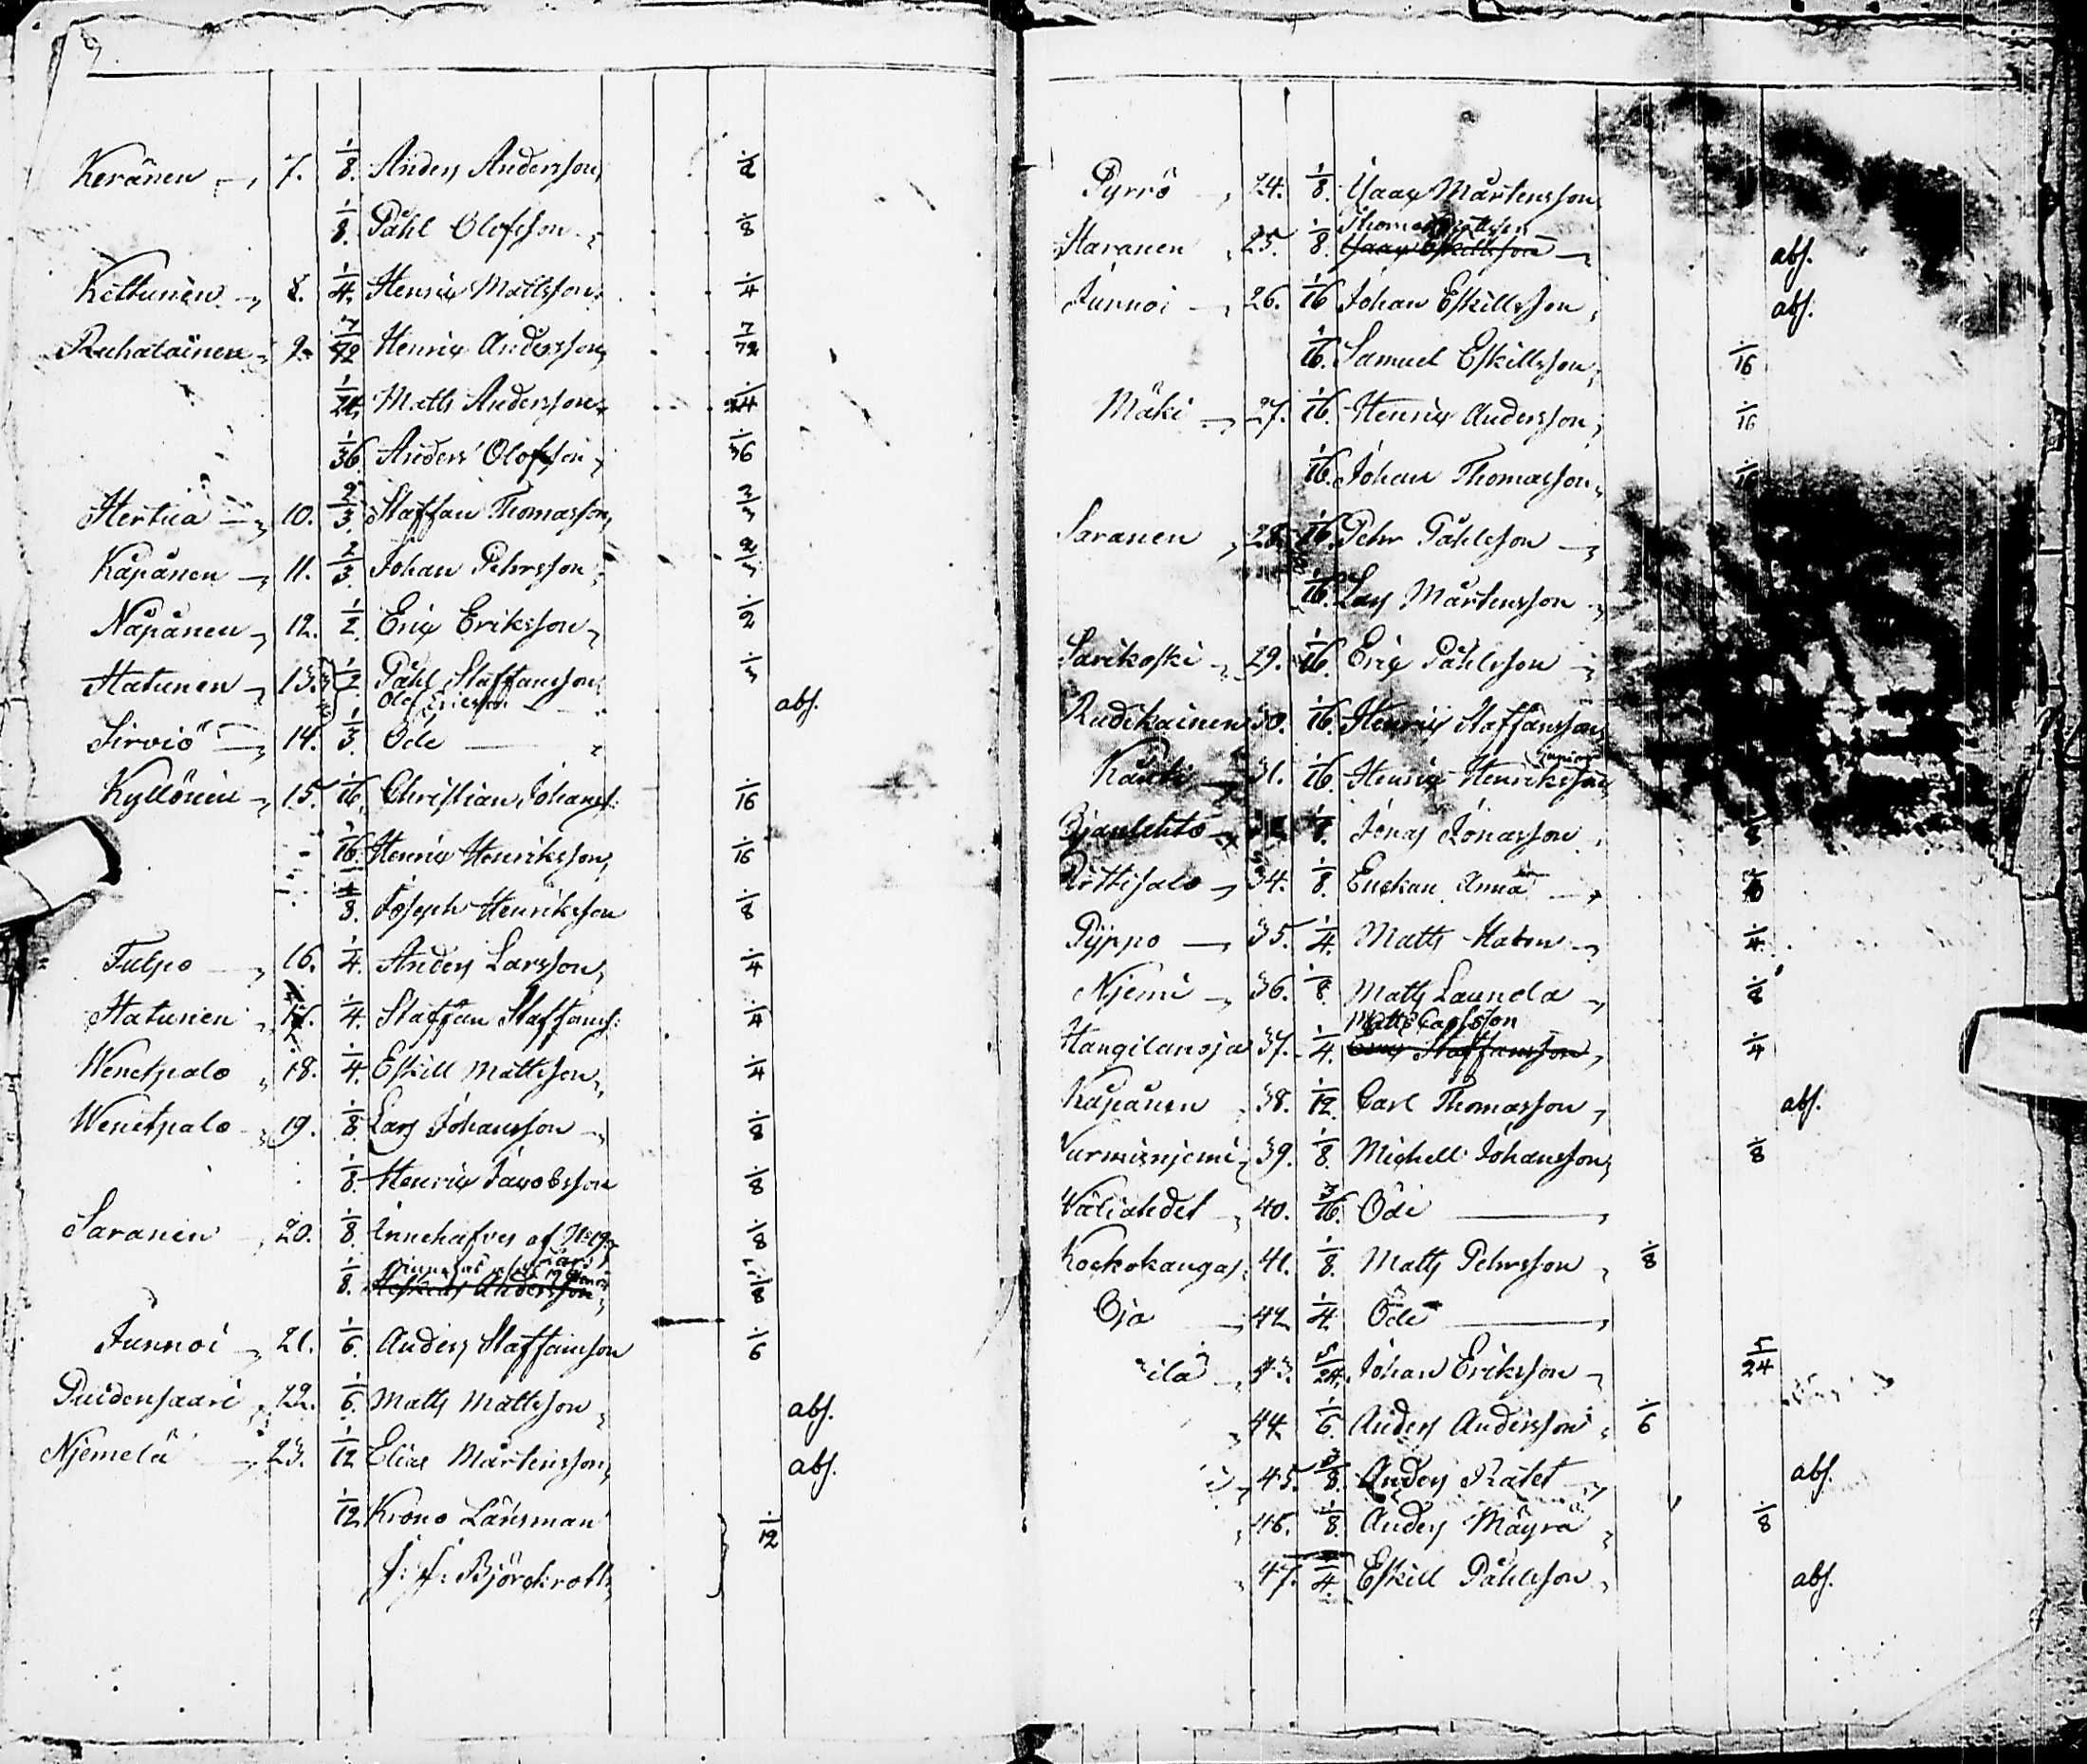 Keränen 7. 1/8. Anders Andersson 1/2
1/8. Påhl Olofsson 1/8
Kettunen 8. 1/4. Henrix Mattsson 1/4
Ruhatainen 9. 7/72 Henrix Andersson 7/72
1/24. Matts Andersson 1/24
1/36 Anders Olofsson 1/36
Hertua 10. 2/3. Staffan Thomasson 2/3
Käpänen 11. 2/3. Johan Pehrsson 2/3
Näpänen 12. 1/2. Erix Eriksson 1/2
Hatunen 13. 1/2 Påhl Staffansson 1/3
Olof Ericsson abs.
Sirviö 14. 1/3. Öde
Kyllönen 15. 1/16. Christian Johanss: 1/16
1/16. Henrix Henriksson 1/16
1/8. Joseph Henriksson 1/8
Tulpo 16. 1/4. Anders Larsson 1/4
Hatunen 17. 1/4. Staffan Staffanss: 1/4
Wenetpalo 18. 1/4. Eskill Mattsson 1/4
Wenetpalo 19. 1/8 Lars Johansson 1/8
1/8. Henrix Jacobsson 1/8
Saranen 20. 1/8. Innehafves af N:19. 1/8
1/8. Andersson 1/8
Junnoi 21. 1/6. Anders Staffansson 1/6
Puidensaari 22. 1/6. Matts Mattsson abs.
Njemelä 23. 1/12 Elias Mårtensson abs.
1/12 Krono Länsman 1/12
f: f: Björckroth
Pyrrö 24. 1/8. Isaax Mårtensson
Thomas
Haranen 25. 1/8. Isaax Eskillsson abs.
Junnoi 26. 1/16 Johan Eskillsson abs.
1/16. Samuel Eskillsson 1/16
Mäki 27. 1/16. Henrix Andersson 1/16
1/16. Johan Thomasson 1/16
Saranen 28. 1/16. Pehr Påhlsson
1/16. Lars Mårtensson
Sarikoski 29. 1/16. Erix Påhlsson
Rudikainen 30. 1/16. Henrix Staffansson
junior
31. 1/16. Henrix Henriksson
1/8. Jonas Jonasson 1/8
Pirttisalo 34. 1/8. Enckan Anna
Pyppo 35. 1/4. Matts Haton 1/4
Njemi 36. 1/8. Matts Launola 1/8
Matts Carlsson
Hangilanoja 37. 1/4. Staffansson 1/4
Käpänen 38. 1/12. Carl Thomasson abs.
Nurmisnjemi 39. 1/8. Michell Johansson 1/8
Wäliahdet 40. 3/16. Öde
Kockokangas 41. 1/8. Matts Pehrsson 1/8
Oja 42. 1/4. Öde
ila 43. 5/24. Johan Eriksson 5/24
44. 1/6. Anders Andersson 1/6
45. 3/8. Anders Ratet abs.
46. 1/8. Anders Mäyrä 1/8
47. 1/4. Eskill Påhlsson abs.